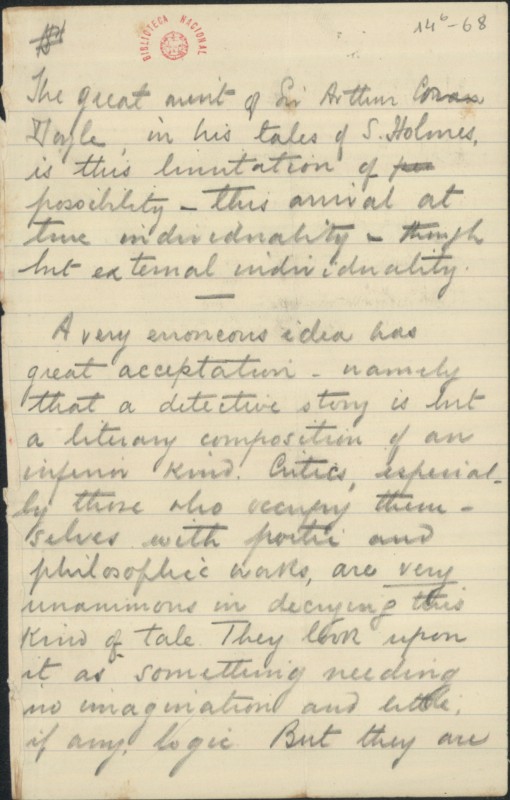 14⁶-68
BIBLIOTECA NACIONAL
The great merit of Sir Arthur Conan
Doyle, in his tales of S. Holmes,
is this limitation of
possibility — this arrival at
true individuality — though
but external individuality.
A very erroneous idea has
great acceptation — namely
that a detective story is but
a literary composition of an
inferior kind. Critics, especial-
ly those who occupy them-
selves with poetic and
philosophic works, are very
unanimous in decrying this
kind of tale. They look upon
it as something needing
no imagination and little,
if any, logic. But they are